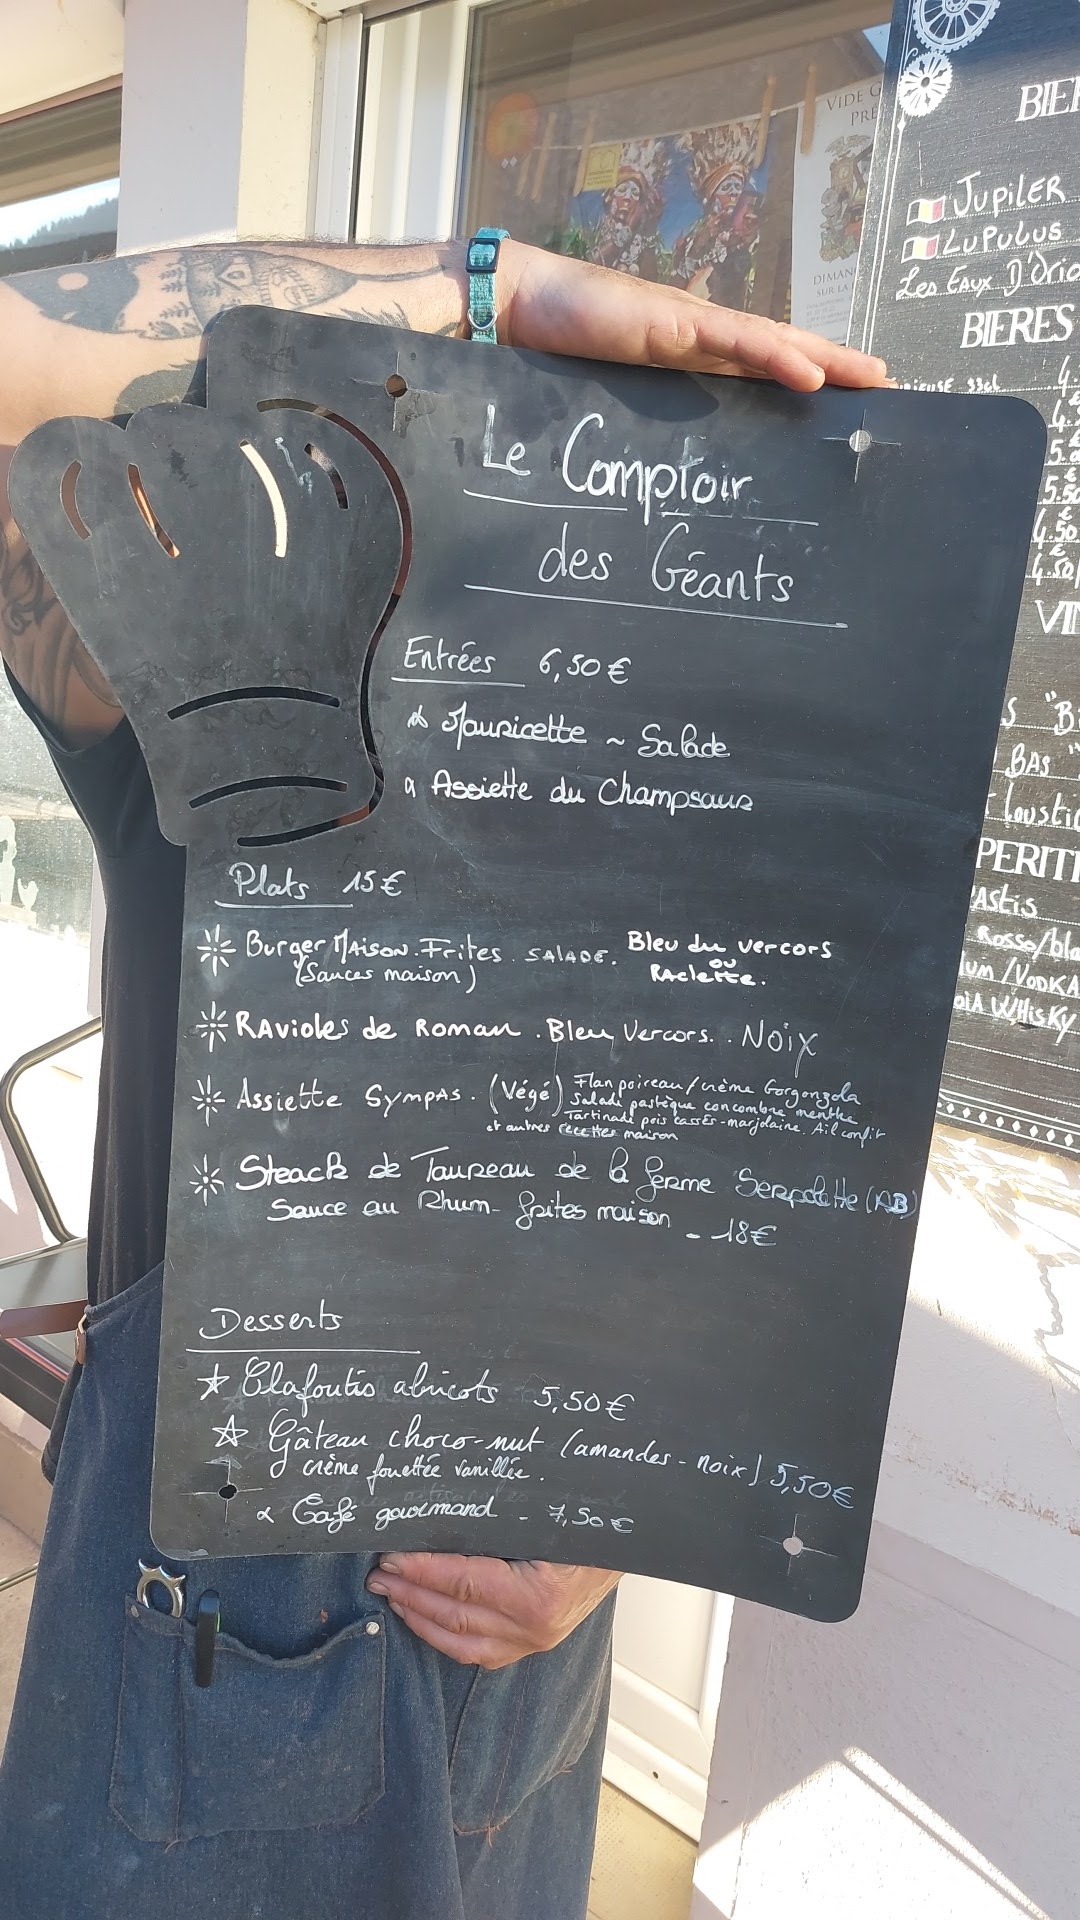 Le Comptoir
des Géants
Entrées 6,50€
Mauricette ~ Salade
Assiette du Champsaur
Plats 15€
Burger Maison. Frites. SALADE. Bleu du vercors
ou
(Sauces maison) RAclette.
RAvioles de Roman. Bleu Vercors.. Noix
Assiette SympAs. (Végé) Flan poireau/crème Gorgonzola
Salade pastèque concombre menthe
Tartinade pois cassés-marjolaine. Ail confit
et autres recettes maison
Steack de Taureau de la ferme Serpolette (AB)
Sauce au Rhum- frites maison - 18€
Desserts
Clafoutis abricots 5,50€
Gâteau choco-nut (amandes - noix) 5,50€
crème fouettée vanillée.
Café gourmand - 7,50€
VIDE G
PRE
DIMAN
SUR LA
BIE
JUPILER
LUPULUS
Les EAUX D'Orio
BIERES
33cl 4.
5.50
4.50
4.50/
VI
S "B
BAS "
Loustic
PERITI
Astis
Rosso/bla
um/VODKA
WHisKy